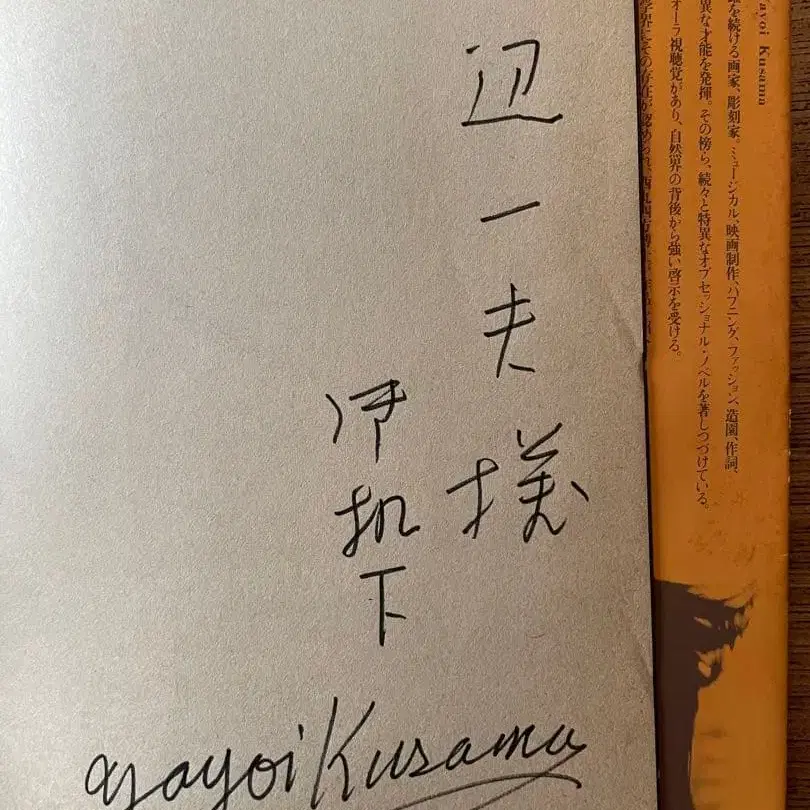 辺一夫様
御机下
yayoi Kusama
ayoi Kusama
を続ける画家、彫刻家。ミュージカル、映画制作、ハプニング、ファッション、造園、作詞、
異な才能を発揮。その傍ら、続々と特異なオブセッショナル・ノベルを著しつづけている。
オーラ視聴覚があり、自然界の背後から強い啓示を受ける。
学界にその存在が認められ、西丸四方博